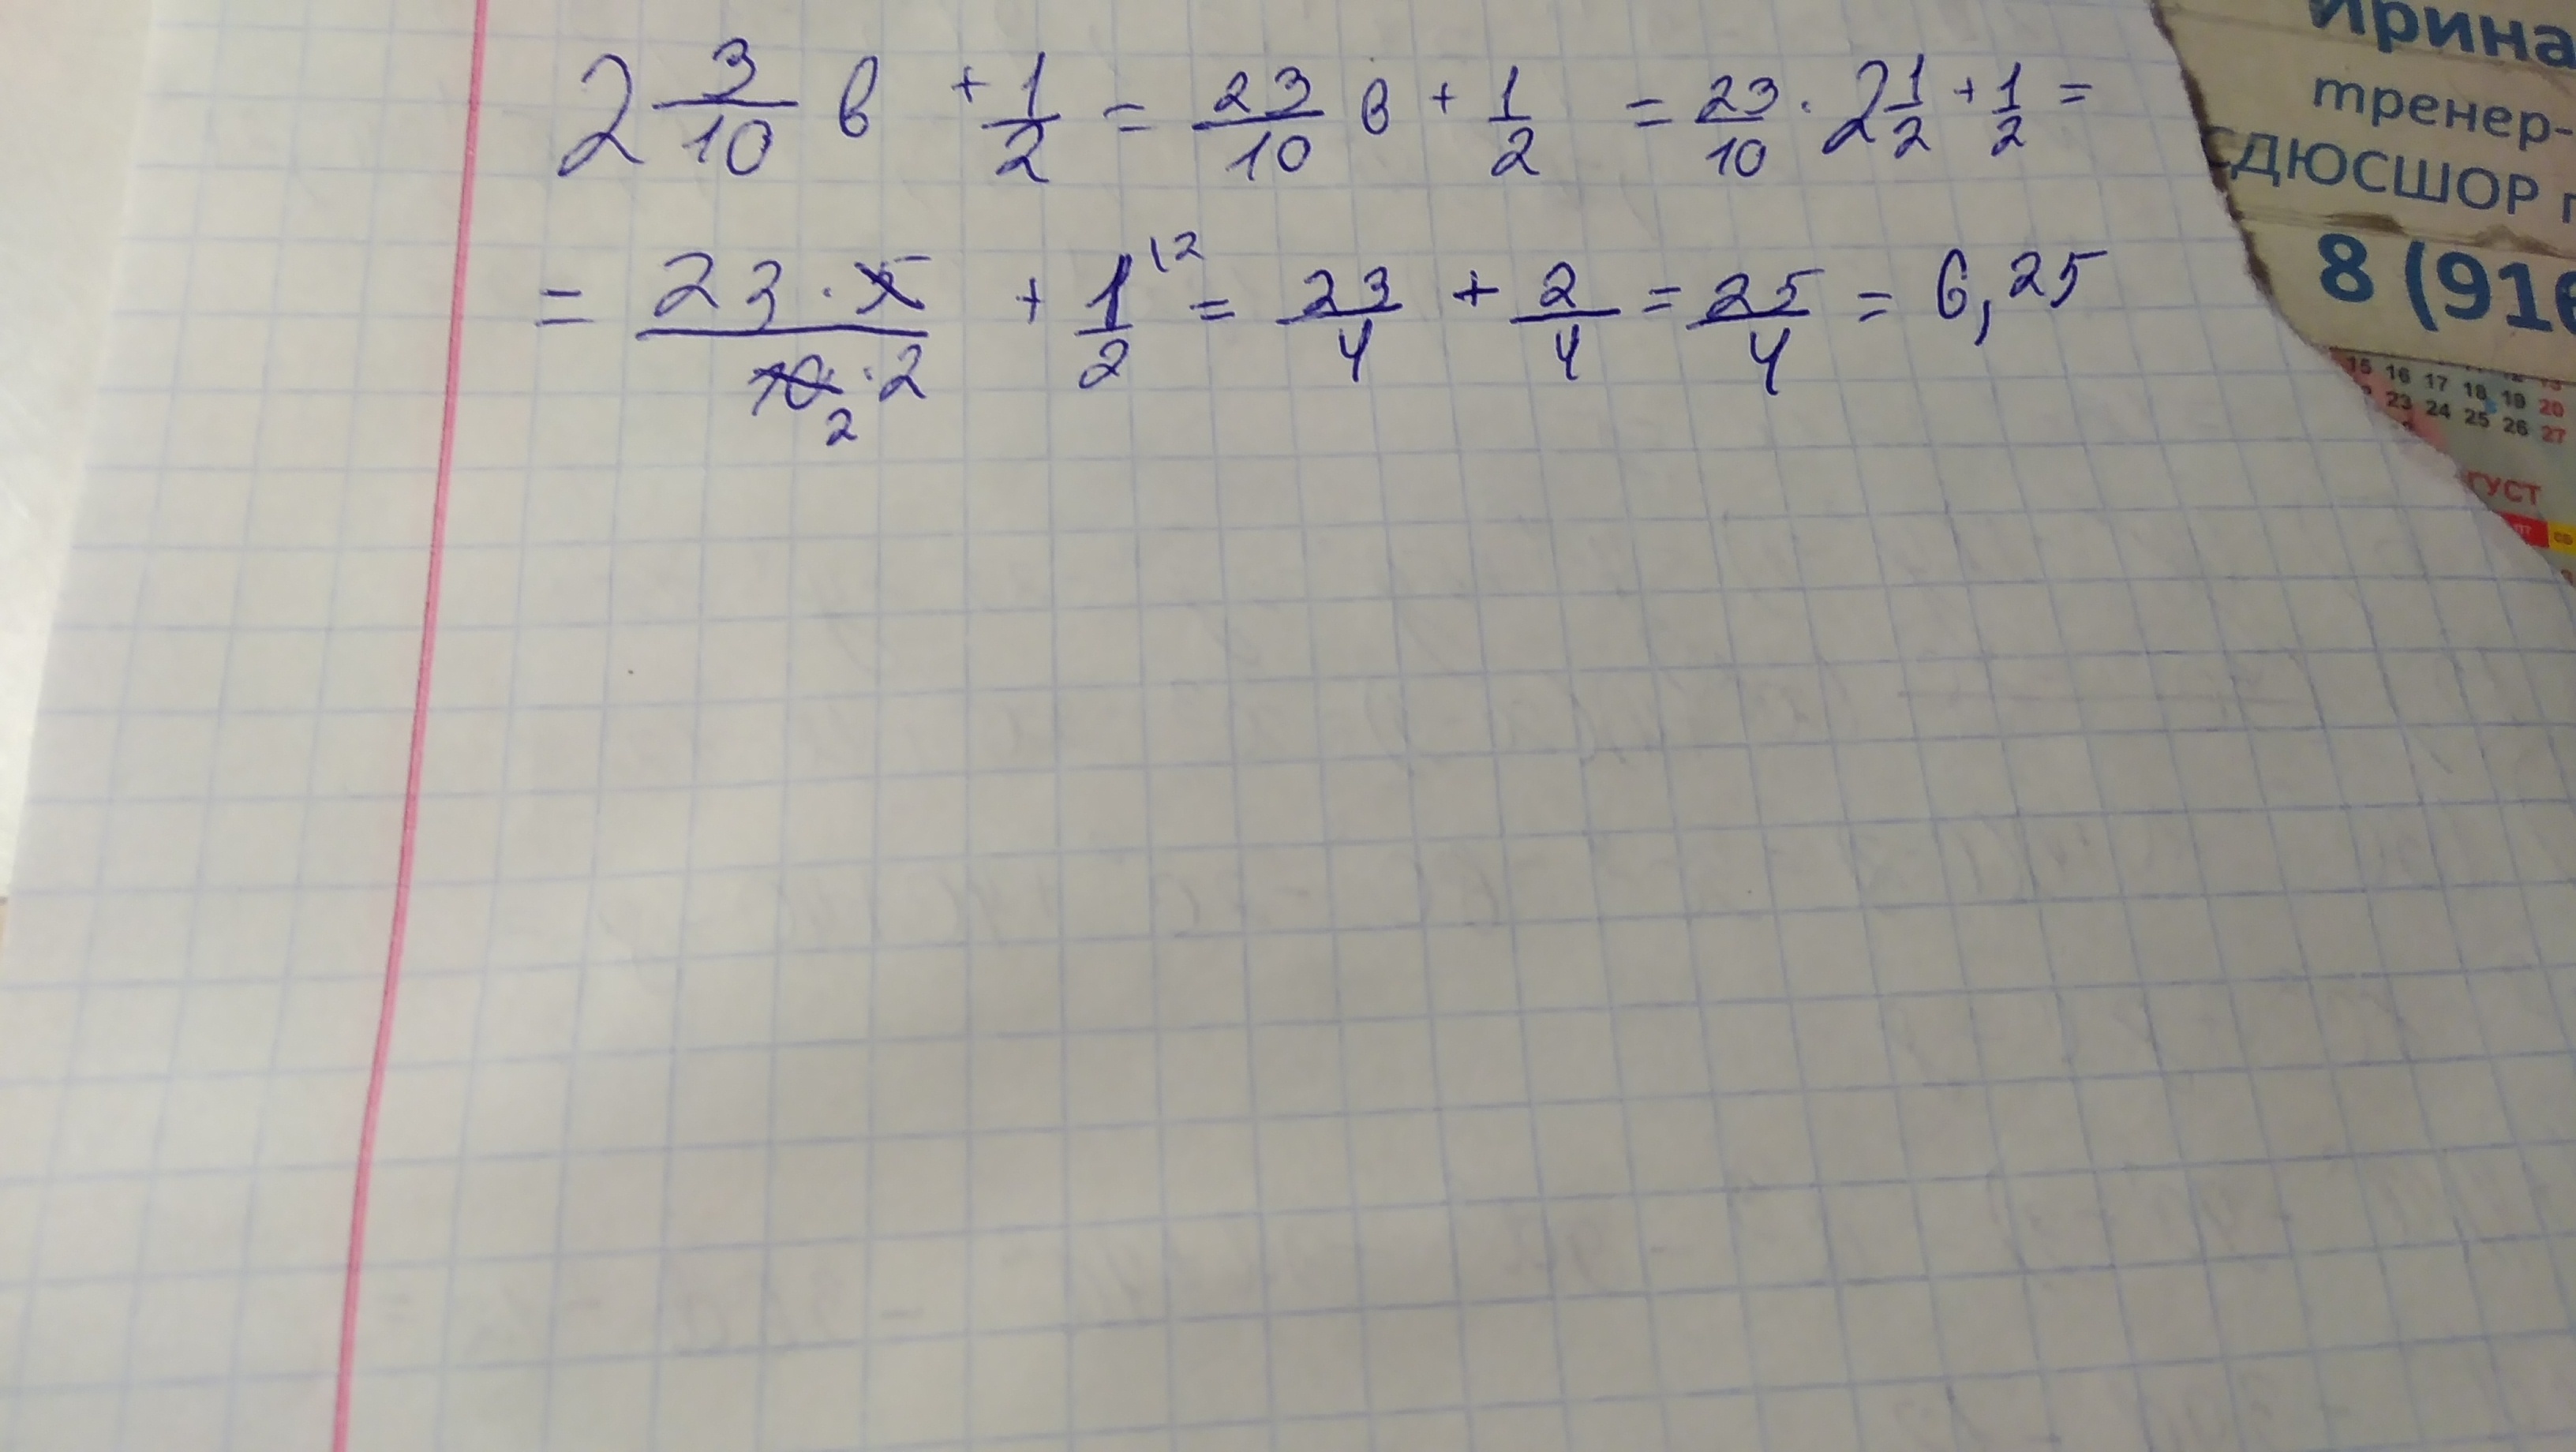 2 3/10 в + 1/2 = 23/10 в + 1/2 = 23/10 · 2 1/2 + 1/2 =
= 23 · 5 / 10 2 · 2 + 1 \2 / 2 = 23/4 + 2/4 = 25/4 = 6,25
Ирина
тренер-
СДЮСШОР
8 (916
15 16 17 18 19 20
23 24 25 26 27
ГУСТ
ПТ СБ